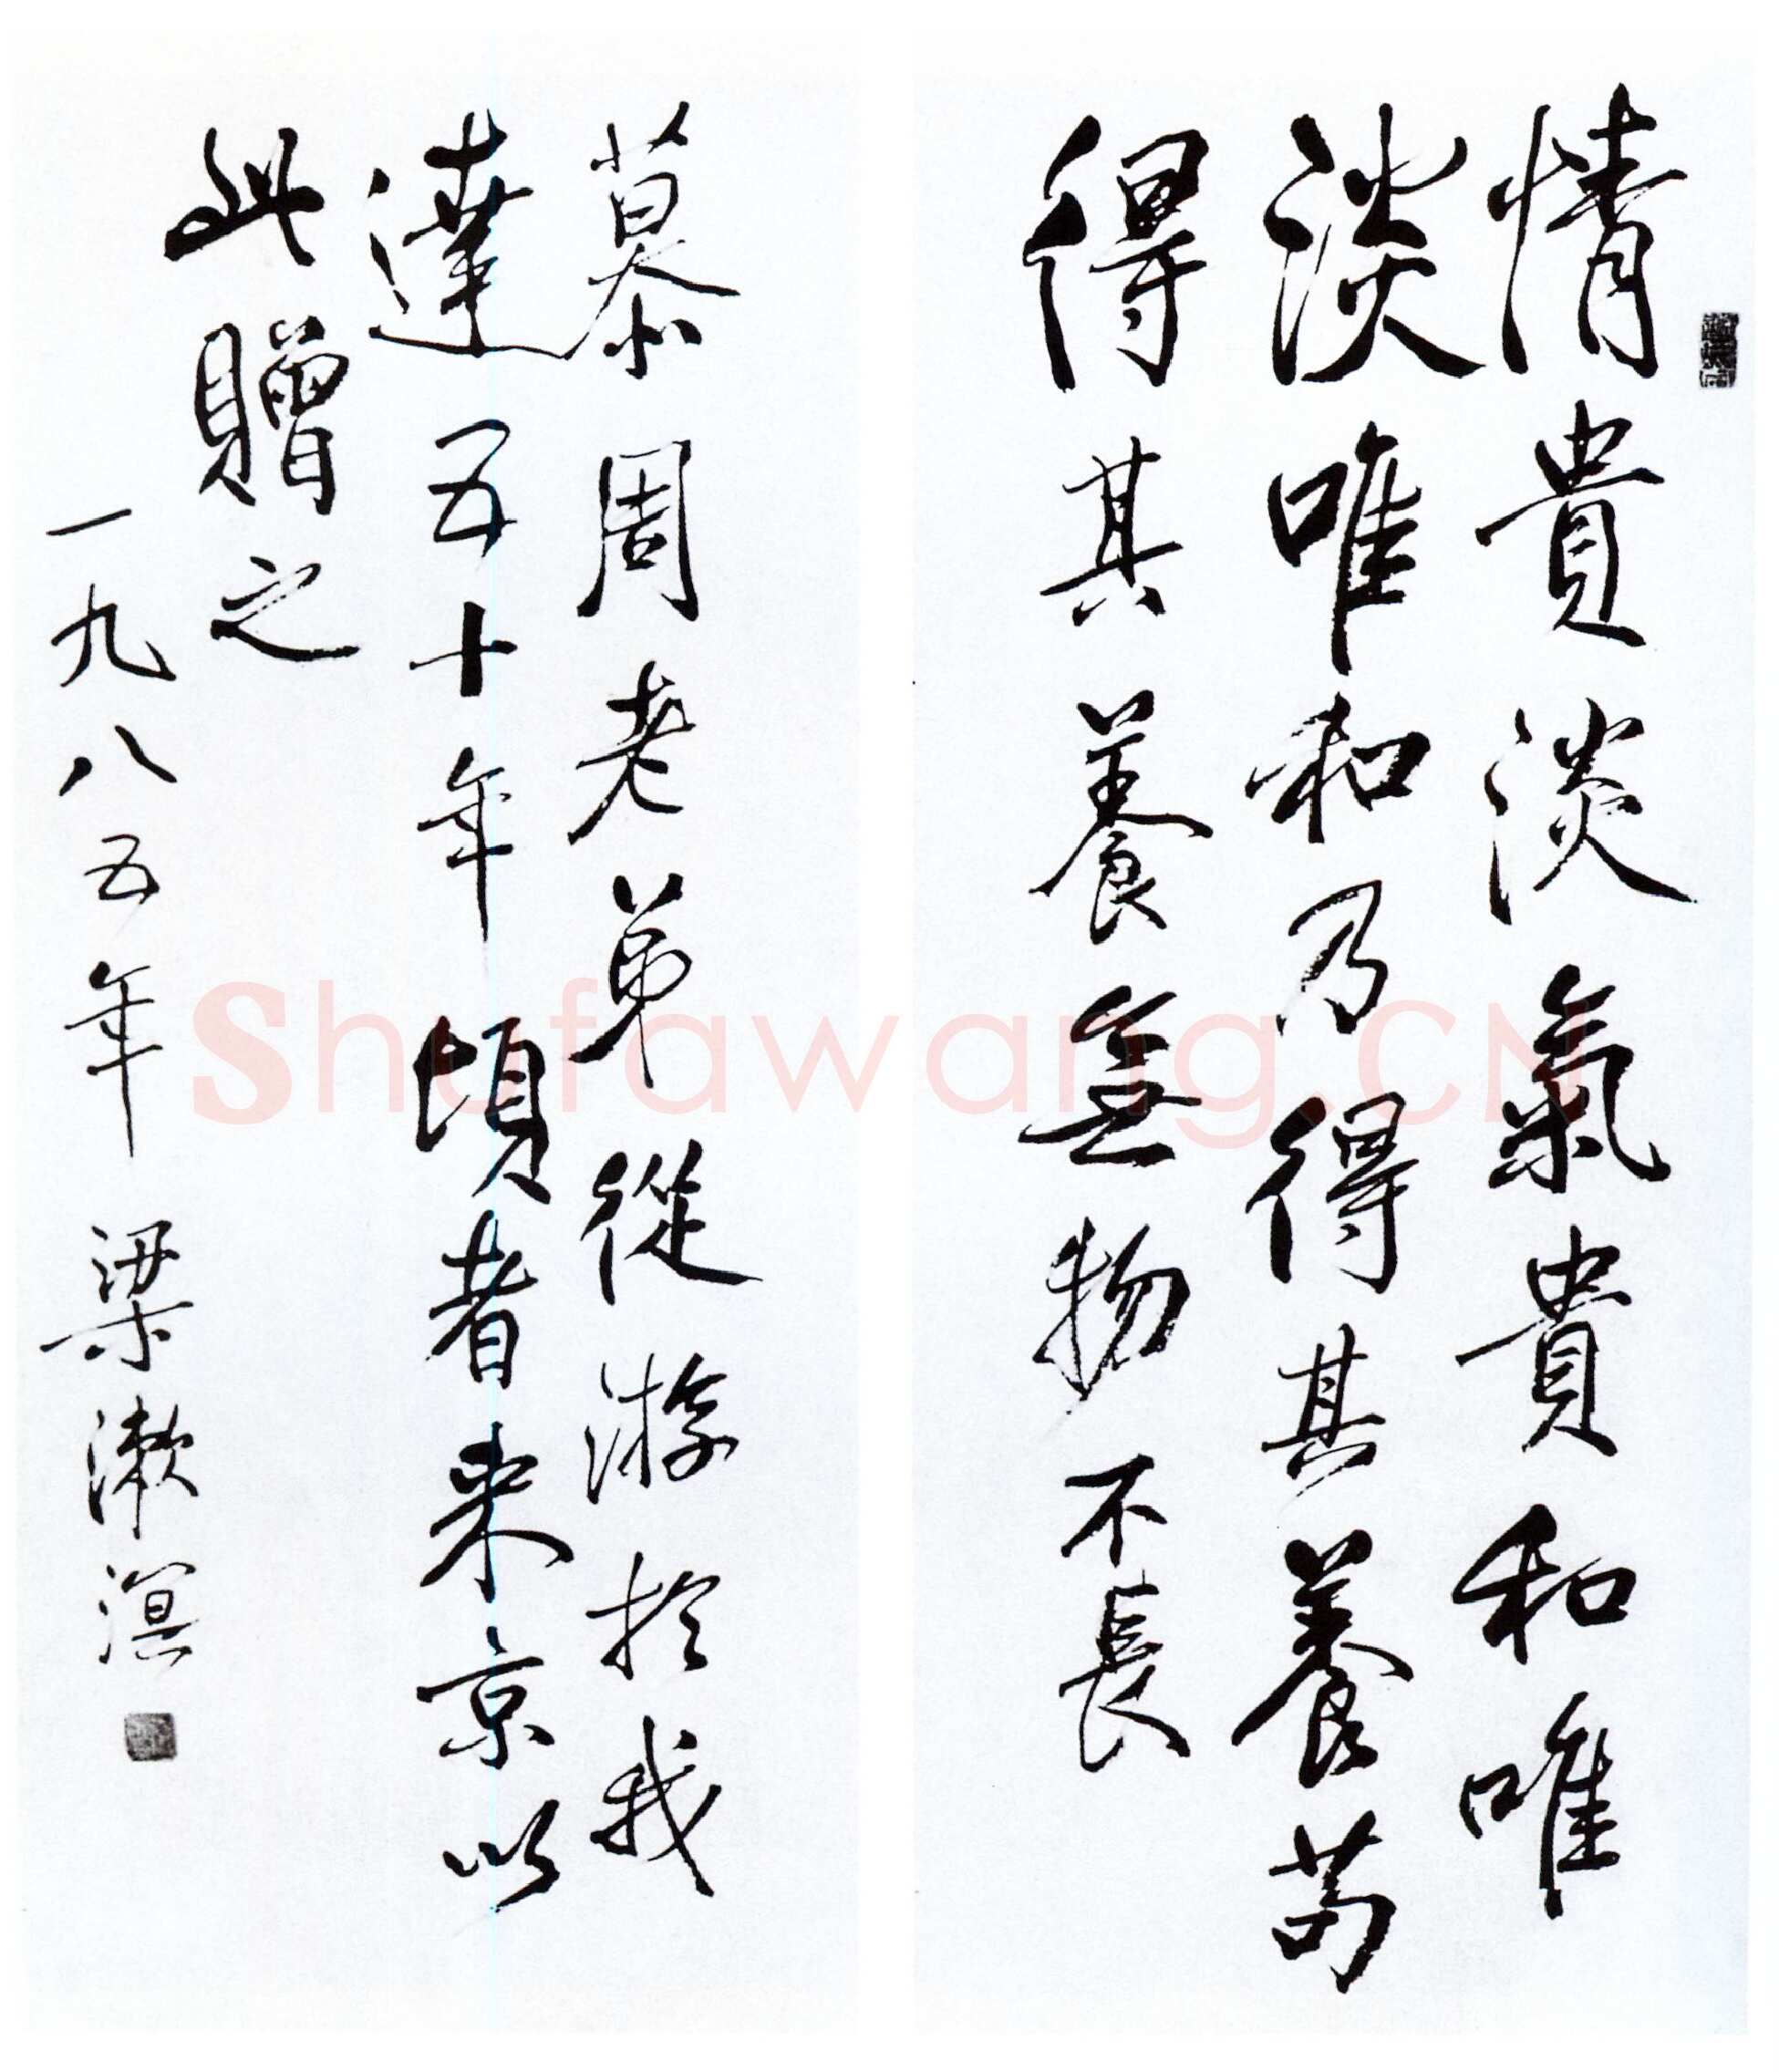 情貴淡氣貴和唯
淡唯和乃得其養苟
得其養無物不長
慕周老弟從游於我
達五十年頃者来京以
此贈之
一九八五年 梁漱溟
Shufawang.CN